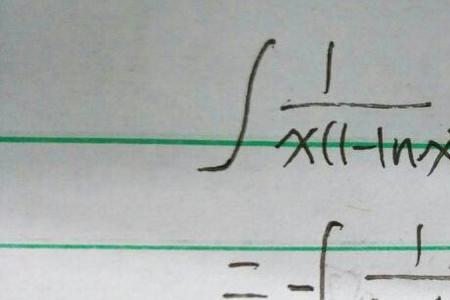 ∫ 1/x(1-lnx)
= -∫ 1